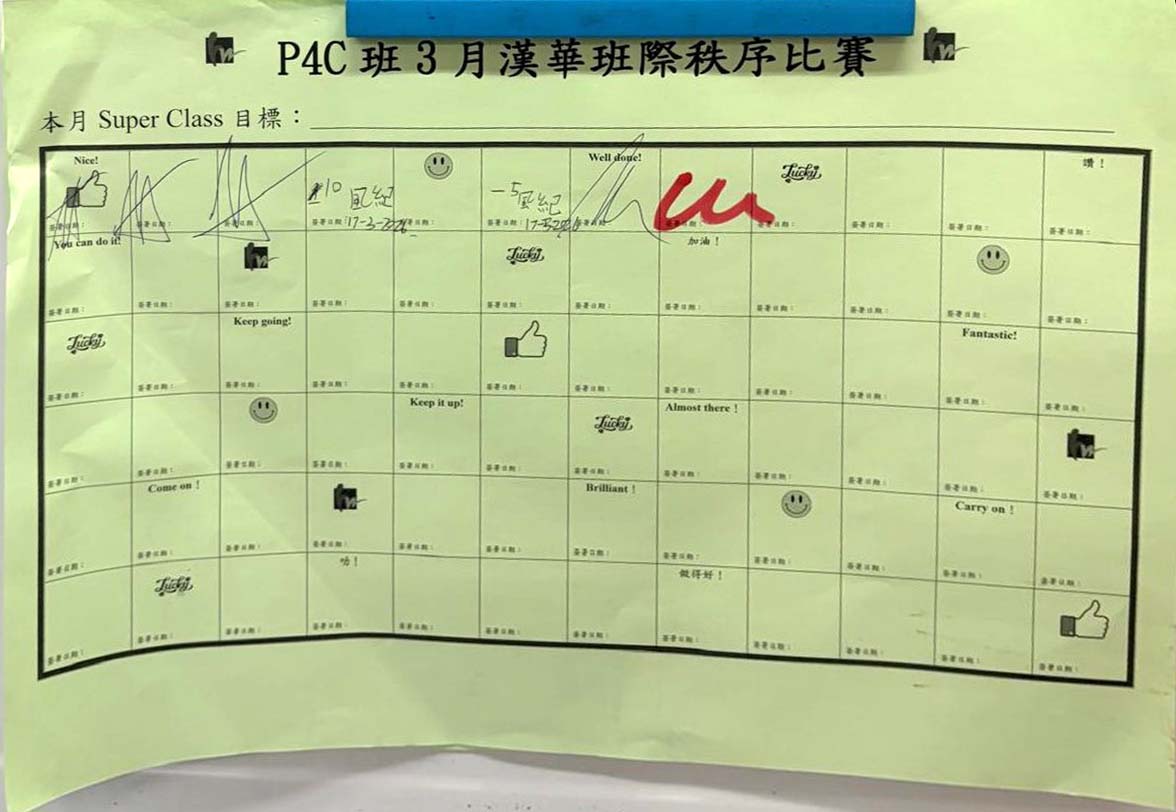 P4C 班 3 月漢華班際秩序比賽
本月 Super Class 目標：
Nice! Well done! Lucky 讚！
10 風紀 -5 風紀
簽署日期： 簽署日期： 簽署日期： 簽署日期：17-3-2026 簽署日期： 簽署日期：17-3-2026 簽署日期： 簽署日期： 簽署日期： 簽署日期： 簽署日期： 簽署日期：
You can do it! Lucky 加油！
簽署日期： 簽署日期： 簽署日期： 簽署日期： 簽署日期： 簽署日期： 簽署日期： 簽署日期： 簽署日期： 簽署日期： 簽署日期： 簽署日期：
Lucky Keep going! Fantastic!
簽署日期： 簽署日期： 簽署日期： 簽署日期： 簽署日期： 簽署日期： 簽署日期： 簽署日期： 簽署日期： 簽署日期： 簽署日期： 簽署日期：
Keep it up! Lucky Almost there！
簽署日期： 簽署日期： 簽署日期： 簽署日期： 簽署日期： 簽署日期： 簽署日期： 簽署日期： 簽署日期： 簽署日期： 簽署日期： 簽署日期：
Come on！ Brilliant！ Carry on！
簽署日期： 簽署日期： 簽署日期： 簽署日期： 簽署日期： 簽署日期： 簽署日期： 簽署日期： 簽署日期： 簽署日期： 簽署日期： 簽署日期：
Lucky 叻！ 做得好！
簽署日期： 簽署日期： 簽署日期： 簽署日期： 簽署日期： 簽署日期： 簽署日期： 簽署日期： 簽署日期： 簽署日期： 簽署日期： 簽署日期：